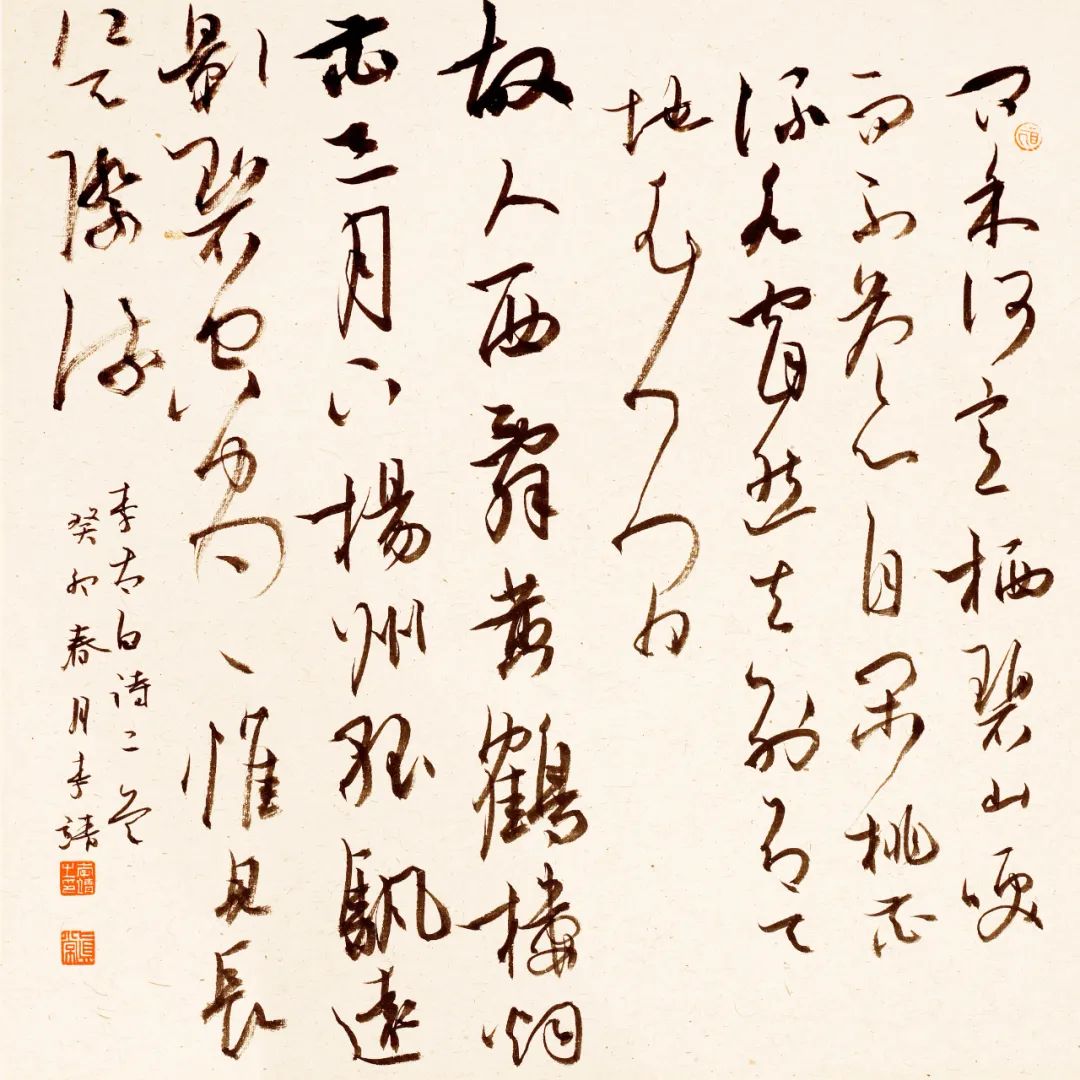 问余何意栖碧山咲
而不答心自闲桃花
流水窅然去别有天
地非人间
故人西辭黄鶴樓烟
花三月下揚州孤颿遠
影碧空尽惟见長
江天際流
李太白诗二首
癸卯春月李靖